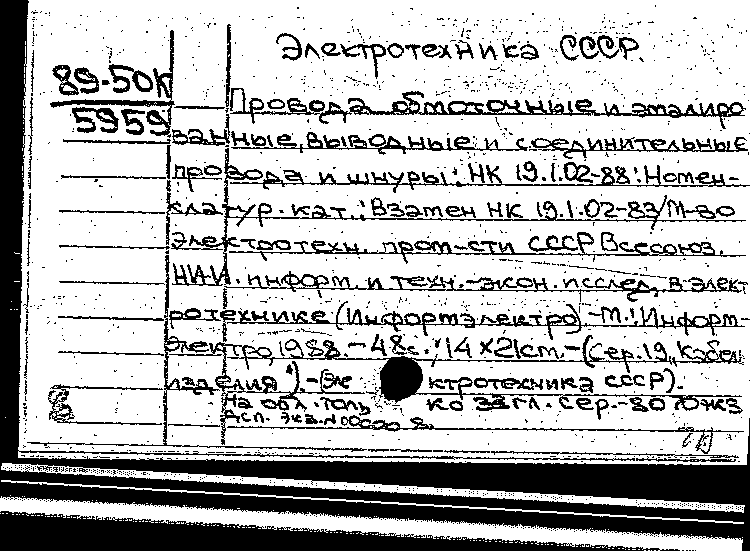 Электротехника СССР.
89-50К
5959
Провода обмоточные и эмалиро
ванные, выводные и соединительные
провода и шнуры: НК 19.1.02-88: Номен-
клатур. кат.: Взамен НК 19.1.02-83/М-во
электротехн. пром-сти СССР Всесоюз.
НИИ. информ. и техн.-экон. исслед. в элект
ротехнике (Информэлектро) -М.: Информ-
электро, 1988. - 48с.; 14×21см. - (Сер. 19, Кабел
изделия). - (Эле ктротехника СССР).
На обл. толь ко загл. сер.- 80
экз. N 00000